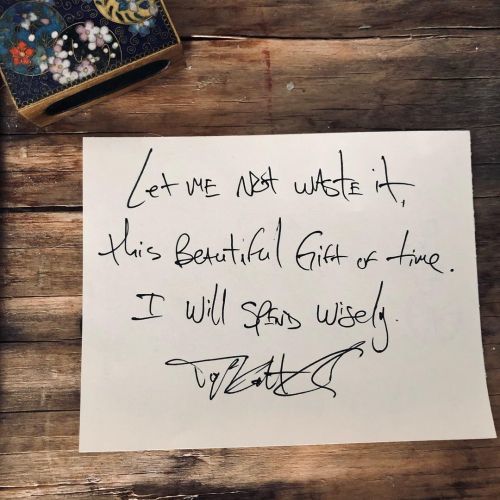 Let me not waste it,
this Beautiful Gift of time.
I will spend wisely.